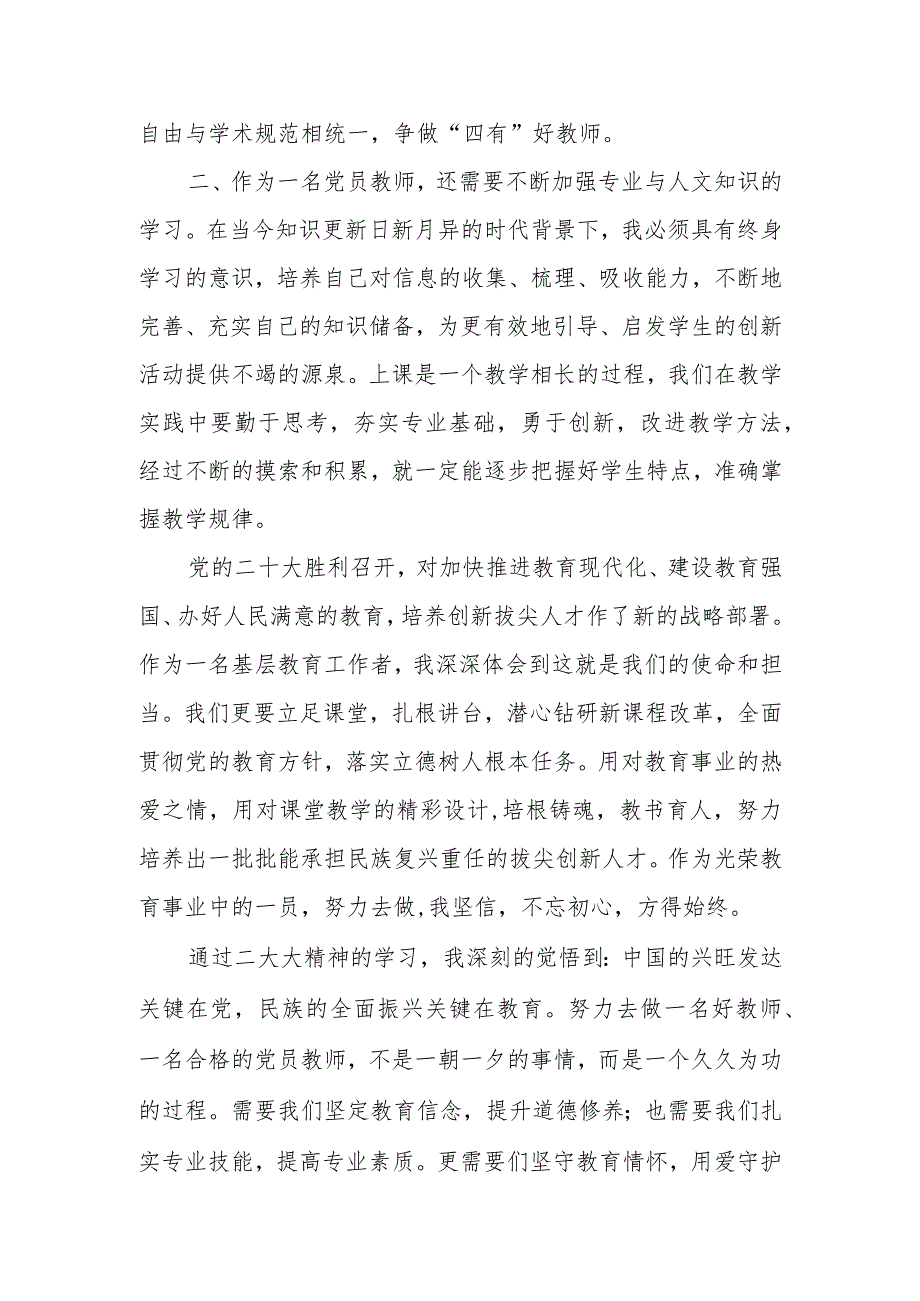 自由与学术规范相统一，争做“四有”好教师。
二、作为一名党员教师，还需要不断加强专业与人文知识的
学习。在当今知识更新日新月异的时代背景下，我必须具有终身
学习的意识，培养自己对信息的收集、梳理、吸收能力，不断地
完善、充实自己的知识储备，为更有效地引导、启发学生的创新
活动提供不竭的源泉。上课是一个教学相长的过程，我们在教学
实践中要勤于思考，夯实专业基础，勇于创新，改进教学方法，
经过不断的摸索和积累，就一定能逐步把握好学生特点，准确掌
握教学规律。
党的二十大胜利召开，对加快推进教育现代化、建设教育强
国、办好人民满意的教育，培养创新拔尖人才作了新的战略部署。
作为一名基层教育工作者，我深深体会到这就是我们的使命和担
当。我们更要立足课堂，扎根讲台，潜心钻研新课程改革，全面
贯彻党的教育方针，落实立德树人根本任务。用对教育事业的热
爱之情，用对课堂教学的精彩设计,培根铸魂，教书育人，努力
培养出一批批能承担民族复兴重任的拔尖创新人才。作为光荣教
育事业中的一员，努力去做,我坚信，不忘初心，方得始终。
通过二大大精神的学习，我深刻的觉悟到：中国的兴旺发达
关键在党，民族的全面振兴关键在教育。努力去做一名好教师、
一名合格的党员教师，不是一朝一夕的事情，而是一个久久为功
的过程。需要我们坚定教育信念，提升道德修养；也需要我们扎
实专业技能，提高专业素质。更需要们坚守教育情怀，用爱守护